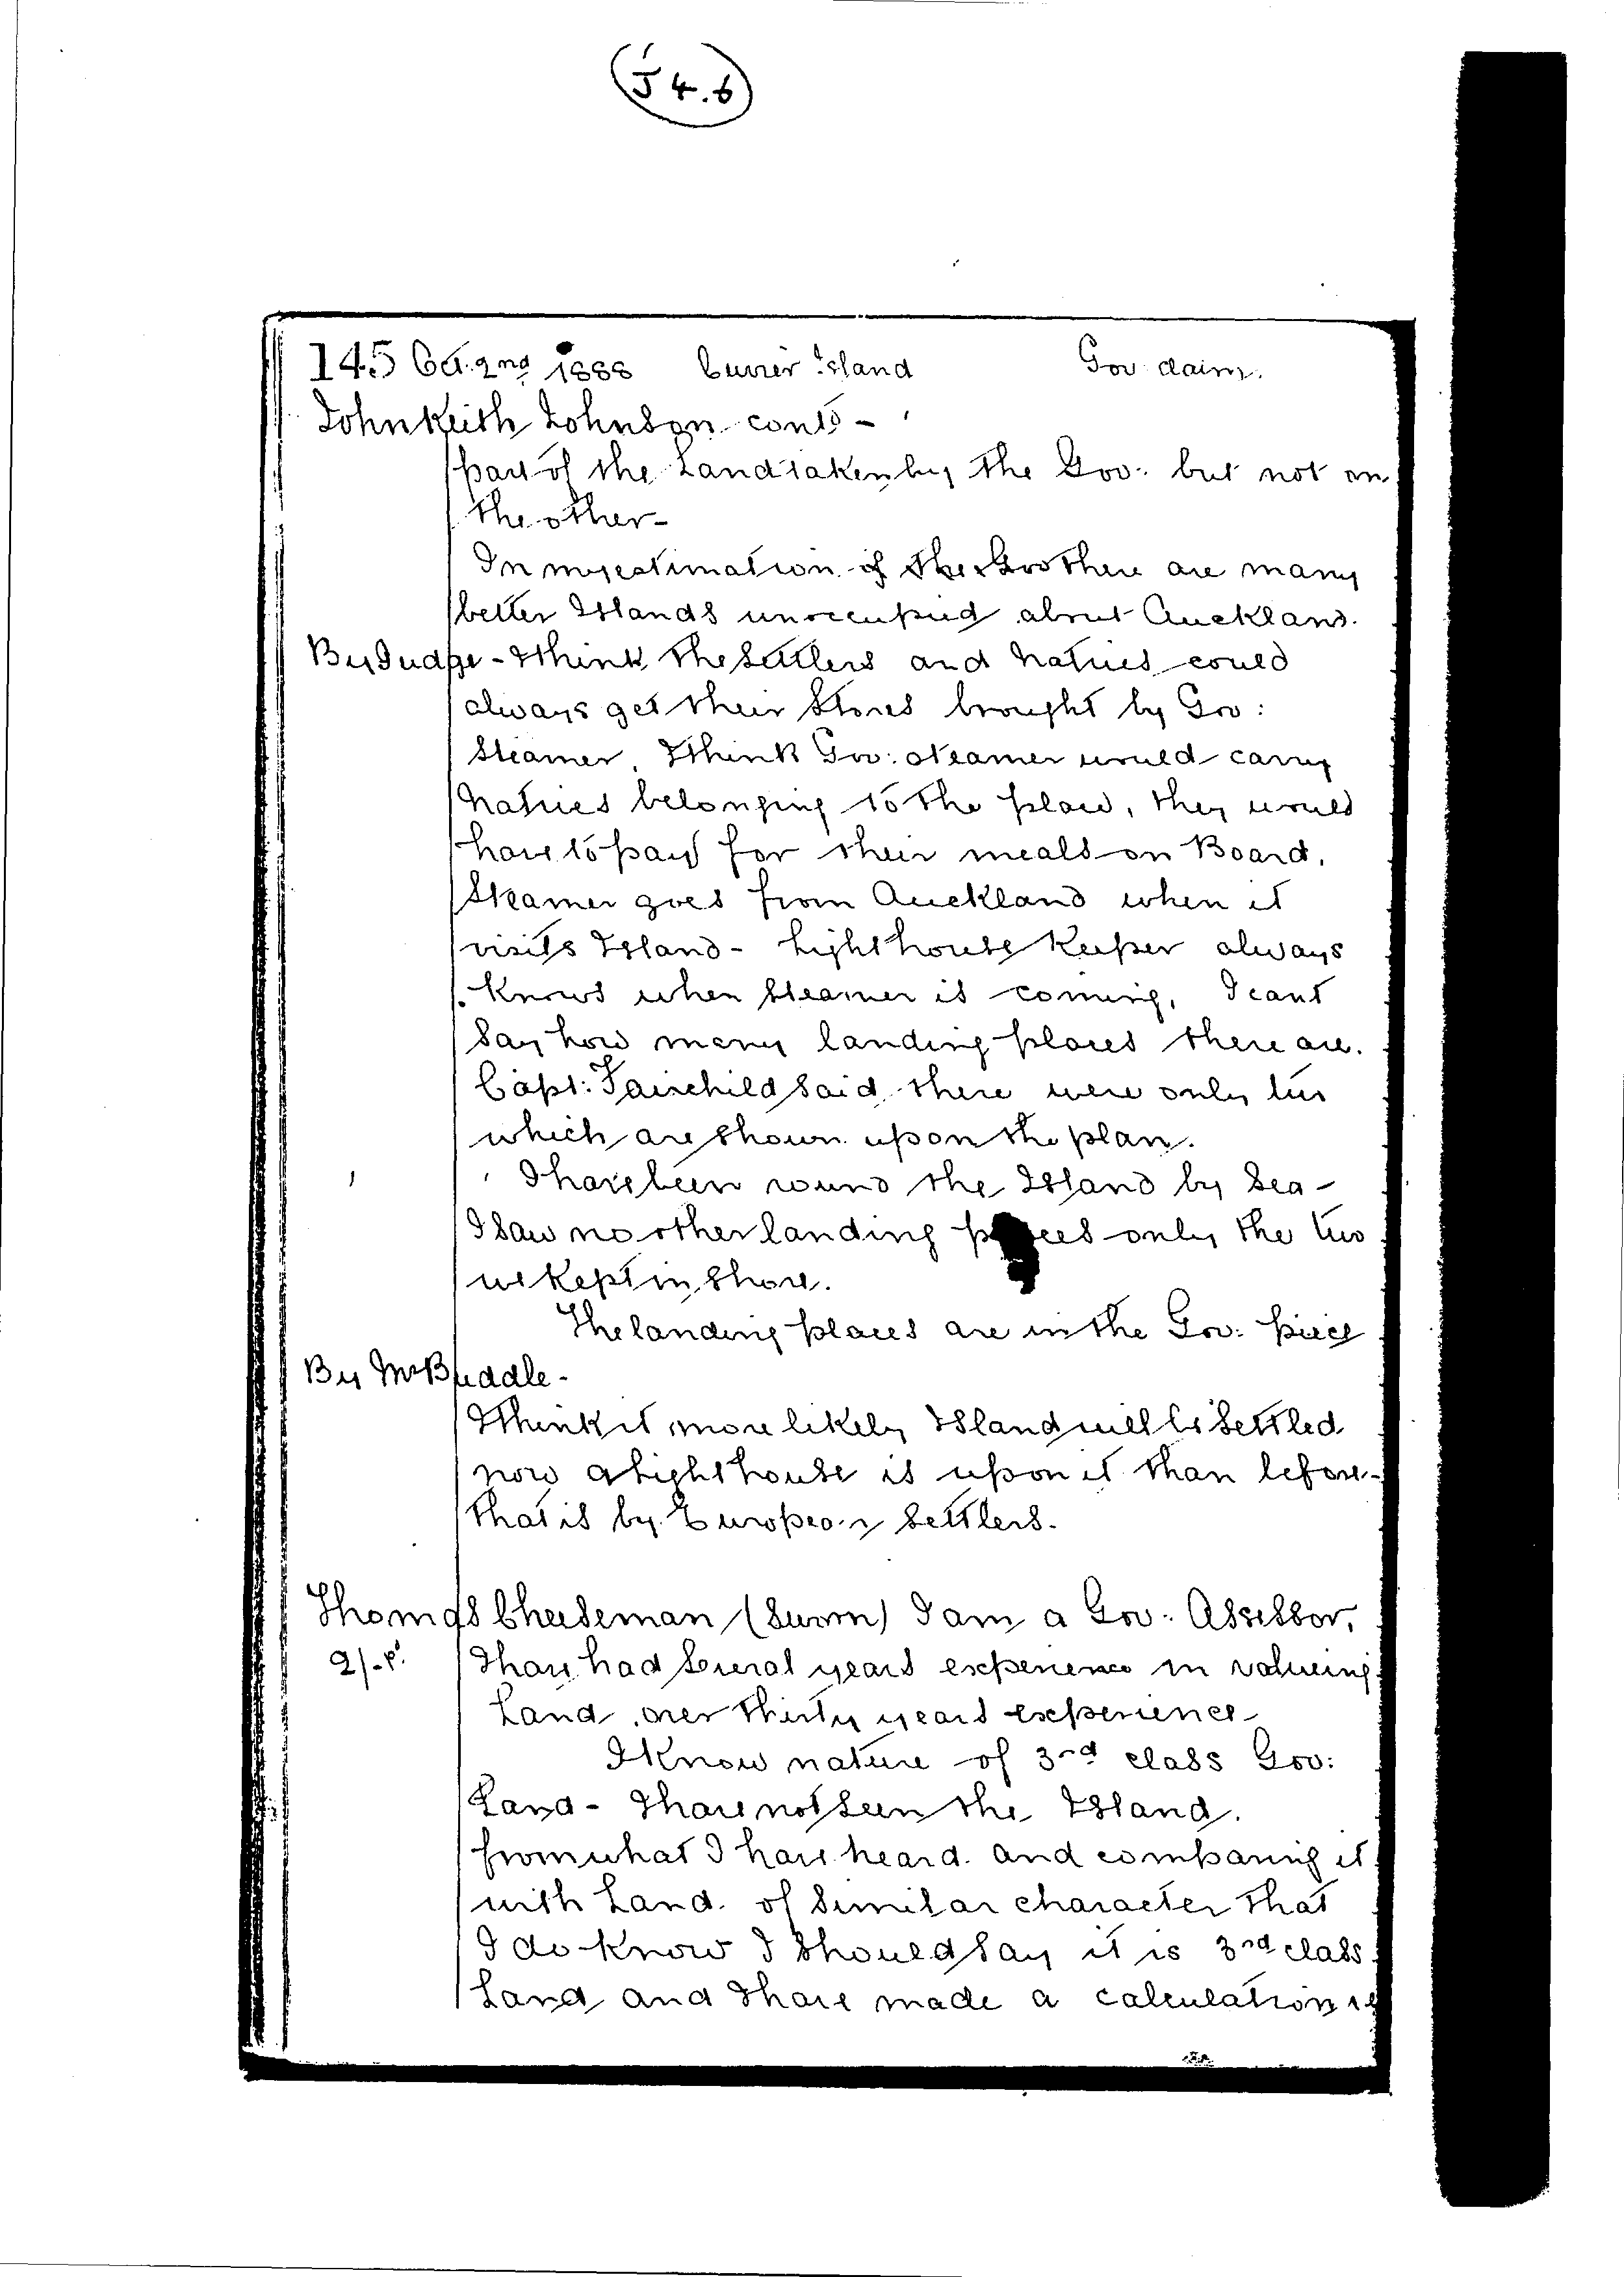 54.6
145 Oct. 2nd 1888 Cuvier Island Gov claim.
John Keith Johnson contd -
part of the Land taken by the Gov: but not on
the other -
In my estimation if there are many
better Islands unoccupied about Auckland.
By Judge - I think the Settlers and Natives could
always get their Stores brought by Gov:
Steamer, I think Gov: steamer would carry
Natives belonging to the place, they would
have to pay for their meals on Board,
Steamer goes from Auckland when it
visits Island - Lighthouse Keeper always
knows when Steamer is coming, I cant
Say how many landing places there are.
Capt: Fairchild said there were only two
which are shown upon the plan.
I have been round the Island by Sea -
I saw no other landing places only the two
we kept in shore.
The landing places are in the Gov: piece
By Mr Buddle -
I think it more likely Island will be settled
now a Lighthouse is upon it than before -
that is by European Settlers.
Thomas Cheeseman (Sworn) I am a Gov: Assessor,
I have had several years experience in valueing
Land, over thirty years experience
I Know nature of 3rd class Gov:
Land - I have not seen the Island.
from what I have heard and comparing it
with Land of Similar character that
I do Know I should say it is 3rd class
Land and I have made a calculation